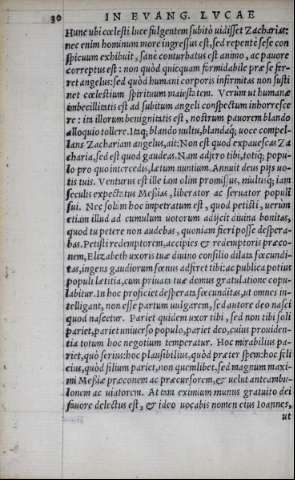 30 IN EVANG. LVCAE
Hunc ubi cœlesti luce fulgentem subitò uidisset Zacharias:
nec enim hominum more ingressus est, sed repentè sese con
spicuum exhibuit, sanè conturbatus est animo, ac pauore
correptus est: non quòd quicquam formidabile præ se fer-
ret angelus: sed quòd humani corporis infirmitas non susti
net cœlestium spirituum maiestatem. Verùm ut humanæ
imbecillitatis est ad subitum angeli conspectum inhorresce
re: ita illorum benignitatis est, nostrum pauorem blando
alloquio tollere. Itaq; blando uultu, blandaq; uoce compel-
lans Zachariam angelus, ait: Non est quòd expauescas Za
charia, sed est quod gaudeas. Nam adfero tibi, totiq; popu-
lo pro quo intercedis, lætum nuntium. Annuit deus pijs uo-
tis tuis. Venturus est ille iam olim promissus, multisq; iam
seculis expectatus Messias, liberator ac seruator populi
sui. Nec solùm hoc impetratum est, quod petisti, uerùm
etiam illud ad cumulum uotorum adijcit diuina bonitas,
quod tu petere non audebas, quoniam fieri posse despera-
bas. Petisti redemptorem, accipies & redemptoris præco-
nem, Elizabeth uxoris tuæ diuino consilio dilata fœcundi-
tas, ingens gaudiorum fœnus adferet tibi: ac publica potius
populi lætitia, cum priuata tuæ domus gratulatione copu-
labitur. In hoc proficiet desperata fœcunditas, ut omnes in-
telligant, non esse partum uulgarem, sed autore deo nasci
quod nascetur. Pariet quidem uxor tibi, sed non tibi soli
pariet, pariet uniuerso populo, pariet deo, cuius prouiden-
tia totum hoc negotium temperatur. Hoc mirabilius pa-
riet, quò seriùs: hoc plausibilius, quòd præter spem: hoc feli
cius, quòd filium pariet, non quemlibet, sed magnum maxi-
mi Messiæ præconem ac præcursorem, & uelut anteambu-
lonem ac uiatorem. At tam eximium munus gratuito dei
fauore delectus est, & ideo uocabis nomen eius Ioannes,
ut